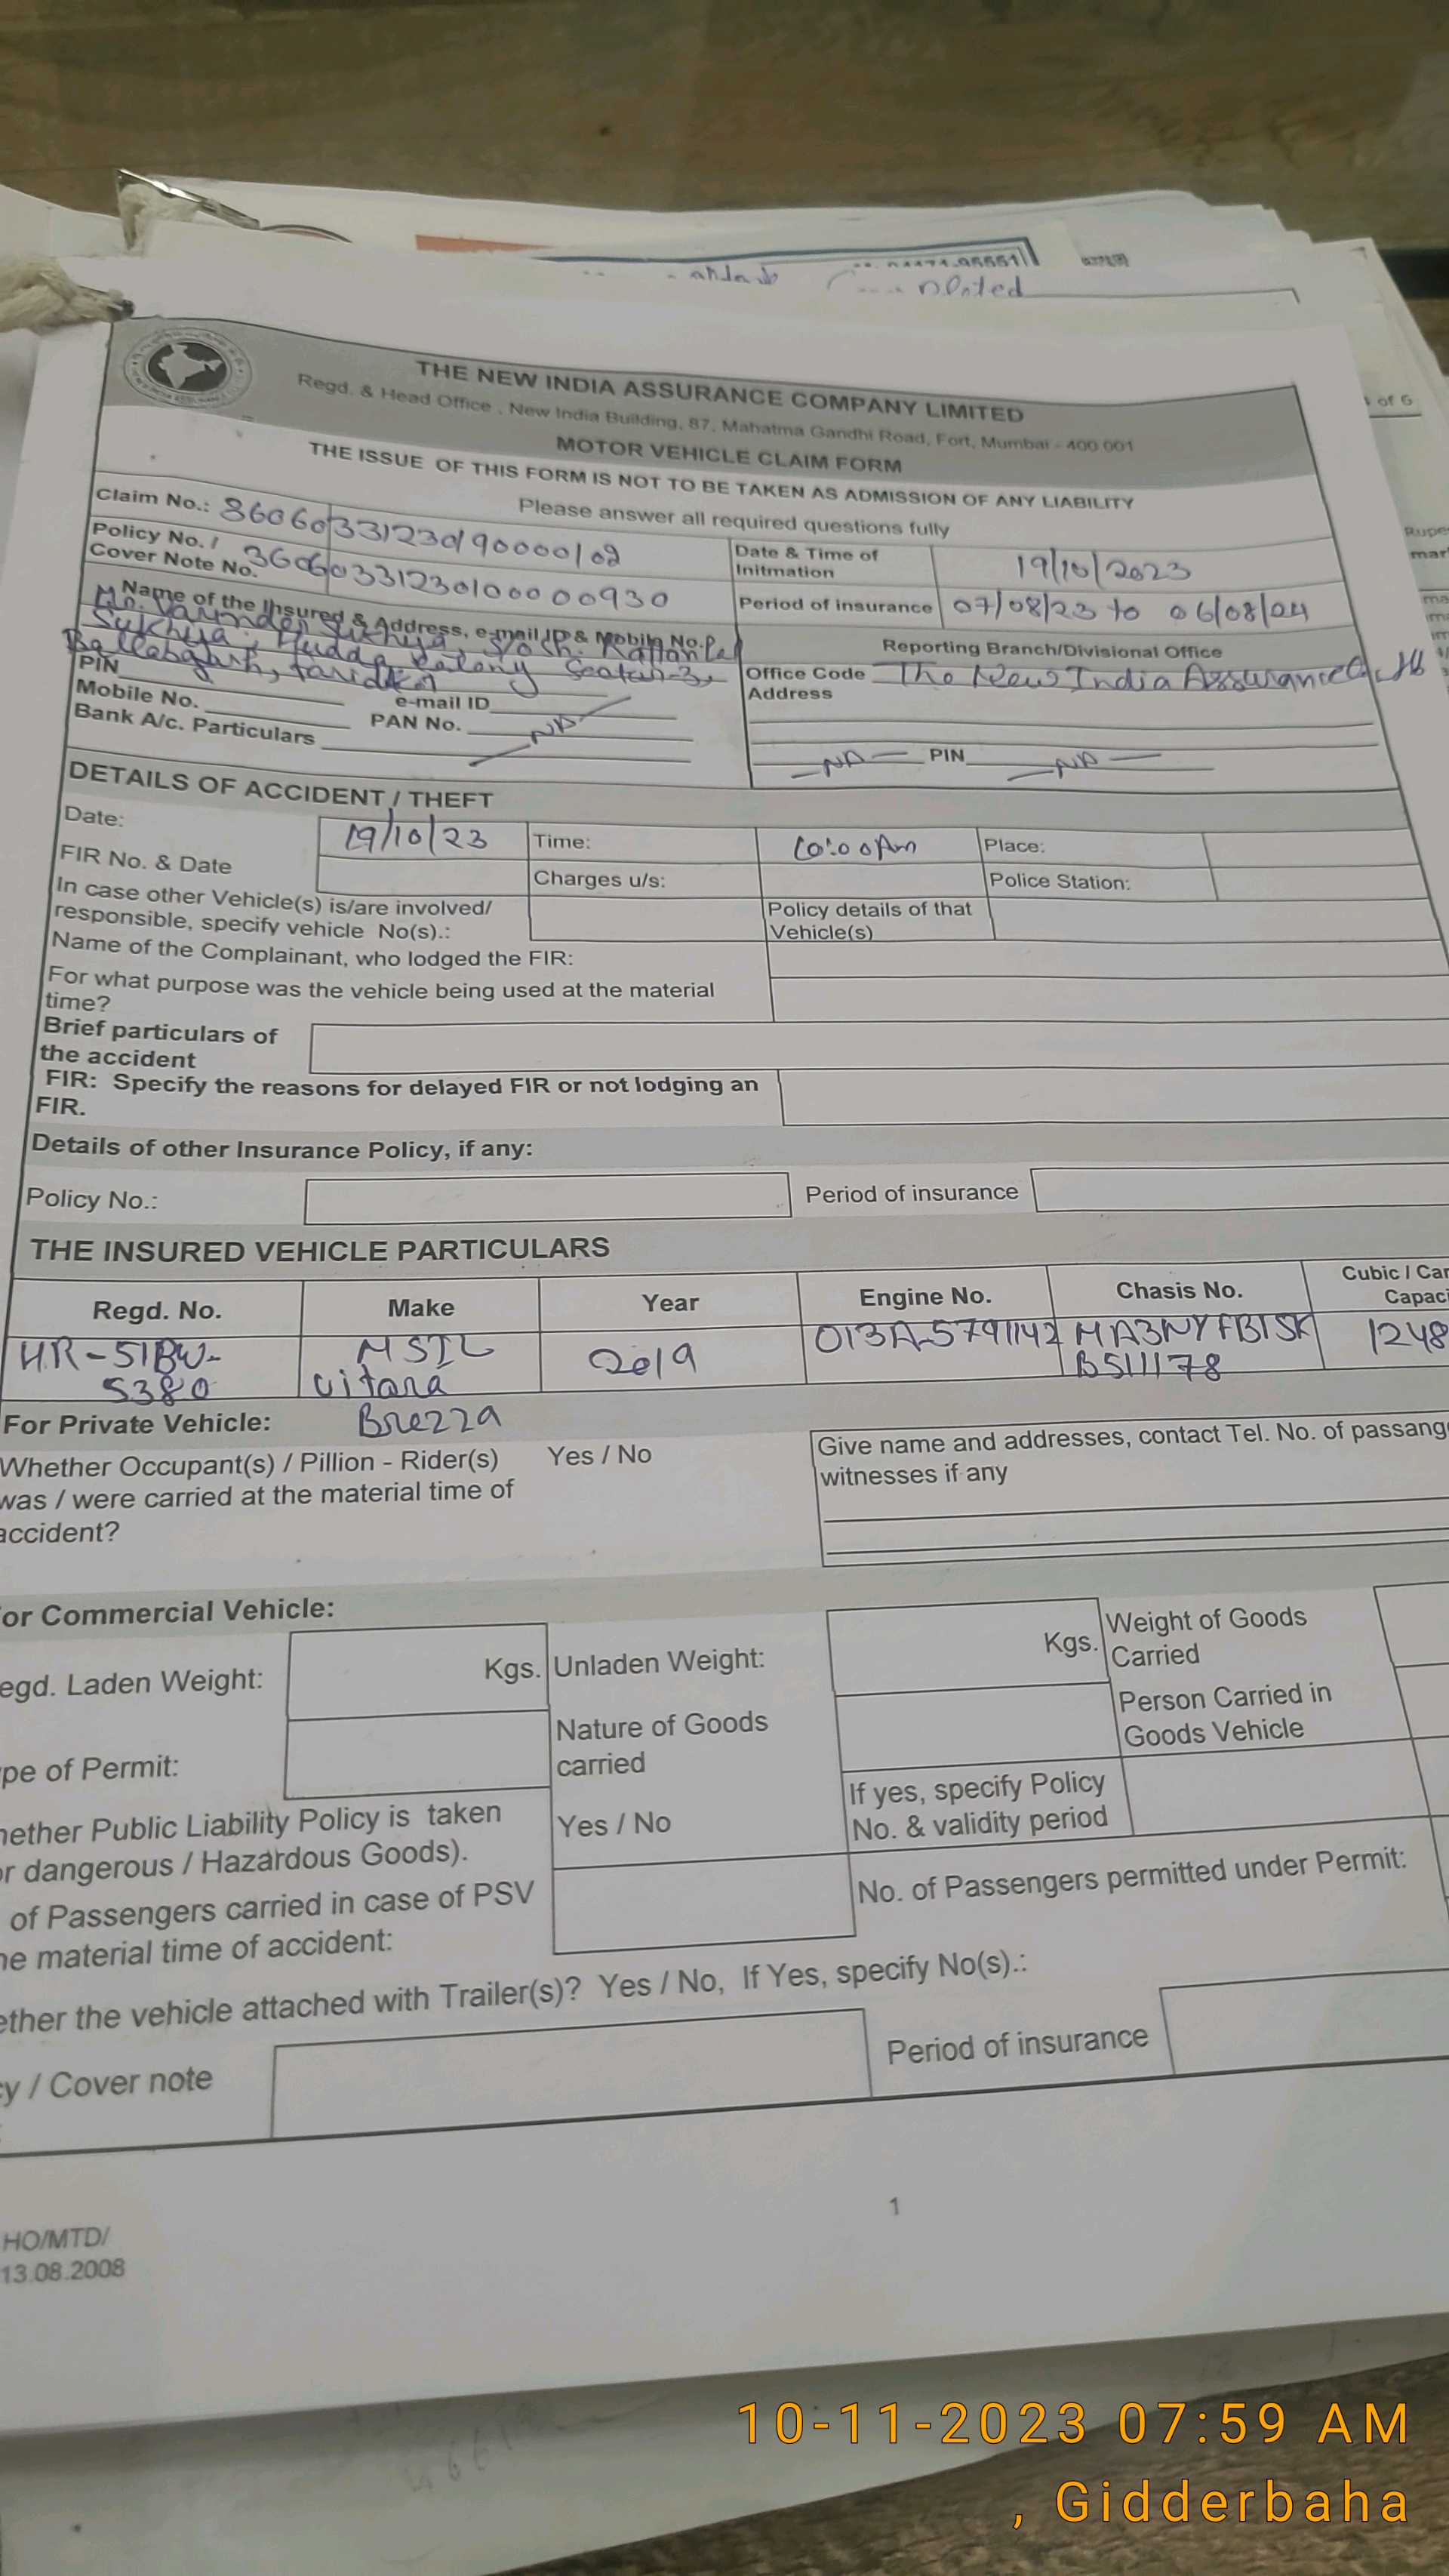 nleted
THE NEW INDIA ASSURANCE COMPANY LIMITED
Regd. & Head Office . New India Building, 87, Mahatma Gandhi Road, Fort, Mumbai - 400 001
MOTOR VEHICLE CLAIM FORM
THE ISSUE OF THIS FORM IS NOT TO BE TAKEN AS ADMISSION OF ANY LIABILITY
Please answer all required questions fully
Claim No.:
Date & Time of Initmation 19/10/2023
Policy No. / Cover Note No.
Period of insurance 07/08/23 to 06/08/24
Name of the Insured & Address, e-mail ID & Mobile No.
Mr. Varinder Sukhija, S/o Sh. Rattan Lal
Sukhija, Hudda Colony Seator-3,
Ballabgarh,
Reporting Branch/Divisional Office
Office Code The New India Assurance
Address
PIN
Mobile No. e-mail ID
Bank A/c. Particulars PAN No. NA
NA PIN NA
DETAILS OF ACCIDENT / THEFT
Date: 19/10/23 Time: 10:00Am Place:
FIR No. & Date Charges u/s: Police Station:
In case other Vehicle(s) is/are involved/
responsible, specify vehicle No(s).:
Policy details of that
Vehicle(s)
Name of the Complainant, who lodged the FIR:
For what purpose was the vehicle being used at the material
time?
Brief particulars of
the accident
FIR: Specify the reasons for delayed FIR or not lodging an
FIR.
Details of other Insurance Policy, if any:
Policy No.: Period of insurance
THE INSURED VEHICLE PARTICULARS
Regd. No. Make Year Engine No. Chasis No. Cubic / Car
Capaci
HR-51BW- MSIL 2019 D13A-5791142 MA3NYFB1SK 1248
5380 Vitara B511178
For Private Vehicle: Brezza
Whether Occupant(s) / Pillion - Rider(s) Yes / No
was / were carried at the material time of
accident?
Give name and addresses, contact Tel. No. of passang
witnesses if any
or Commercial Vehicle:
egd. Laden Weight: Kgs. Unladen Weight: Kgs. Weight of Goods
Carried
pe of Permit: Nature of Goods
carried
Person Carried in
Goods Vehicle
hether Public Liability Policy is taken Yes / No
or dangerous / Hazardous Goods).
If yes, specify Policy
No. & validity period
of Passengers carried in case of PSV
he material time of accident:
No. of Passengers permitted under Permit:
ether the vehicle attached with Trailer(s)? Yes / No, If Yes, specify No(s).:
cy / Cover note Period of insurance
1
HO/MTD/
13.08.2008
10-11-2023 07:59 AM
, Gidderbaha